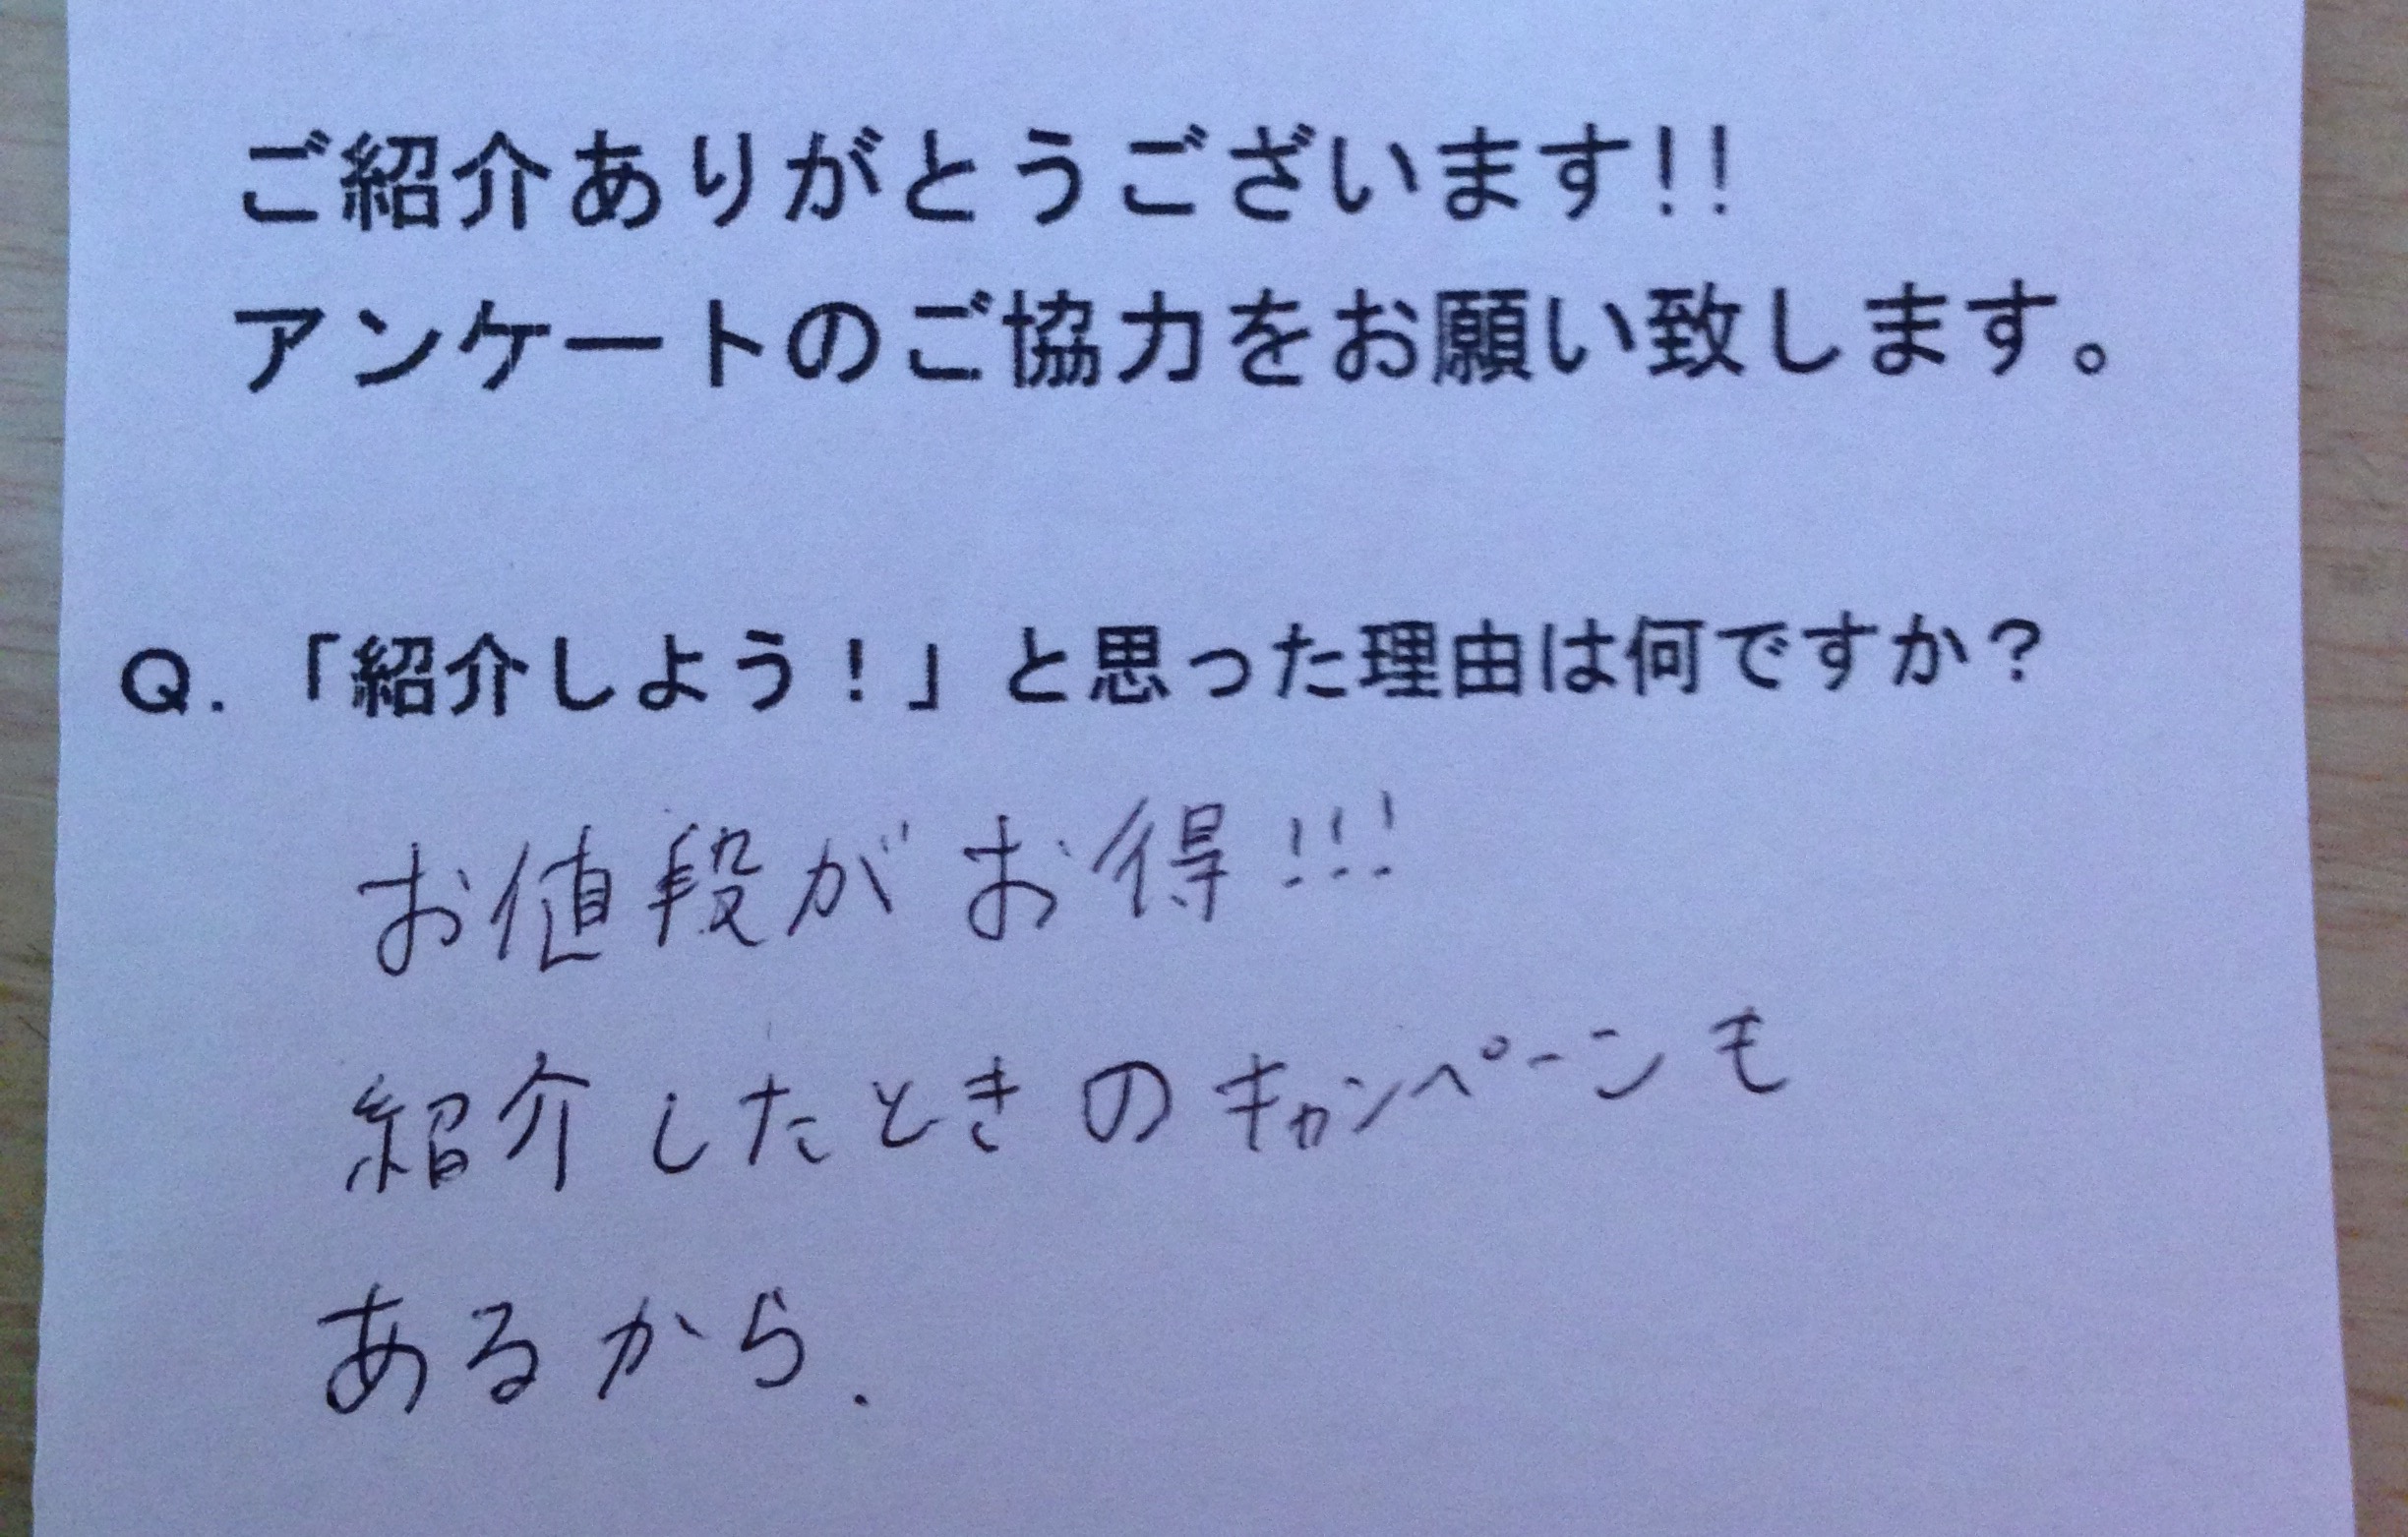 ご紹介ありがとうございます!!
アンケートのご協力をお願い致します。
Q.「紹介しよう！」と思った理由は何ですか？
お値段がお得!!!
紹介したときのキャンペーンも
あるから.